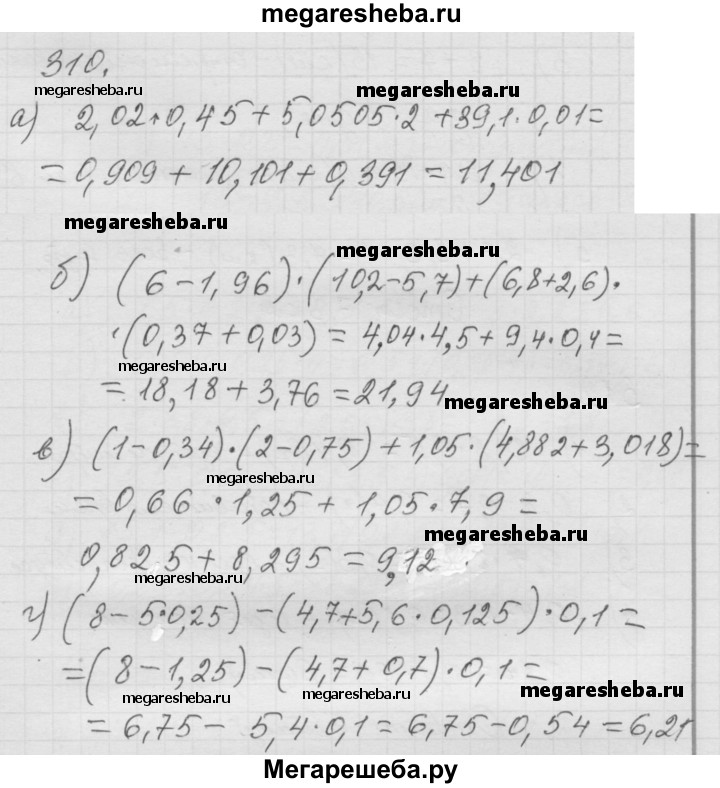 megaresheba.ru
310.
megaresheba.ru
megaresheba.ru
а) 2,02·0,45+5,0505·2+39,1·0,01=
=0,909+10,101+0,391=11,401
megaresheba.ru
megaresheba.ru
б) (6-1,96)·(10,2-5,7)+(6,8+2,6)·
·(0,37+0,03)=4,04·4,5+9,4·0,4=
megaresheba.ru
=18,18+3,76=21,94
megaresheba.ru
в) (1-0,34)·(2-0,75)+1,05·(4,882+3,018)=
megaresheba.ru
=0,66·1,25+1,05·7,9=
megaresheba.ru
0,825+8,295=9,12.
megaresheba.ru
г) (8-5·0,25)-(4,7+5,6·0,125)·0,1=
=(8-1,25)-(4,7+0,7)·0,1=
megaresheba.ru
megaresheba.ru
megaresheba.ru
=6,75-5,4·0,1=6,75-0,54=6,21
Мегарешеба.ру